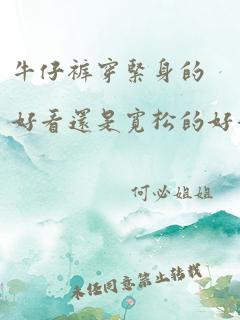 牛仔褲穿緊身的
好看還是寬松的好
何必姐姐
未经同意禁止转载